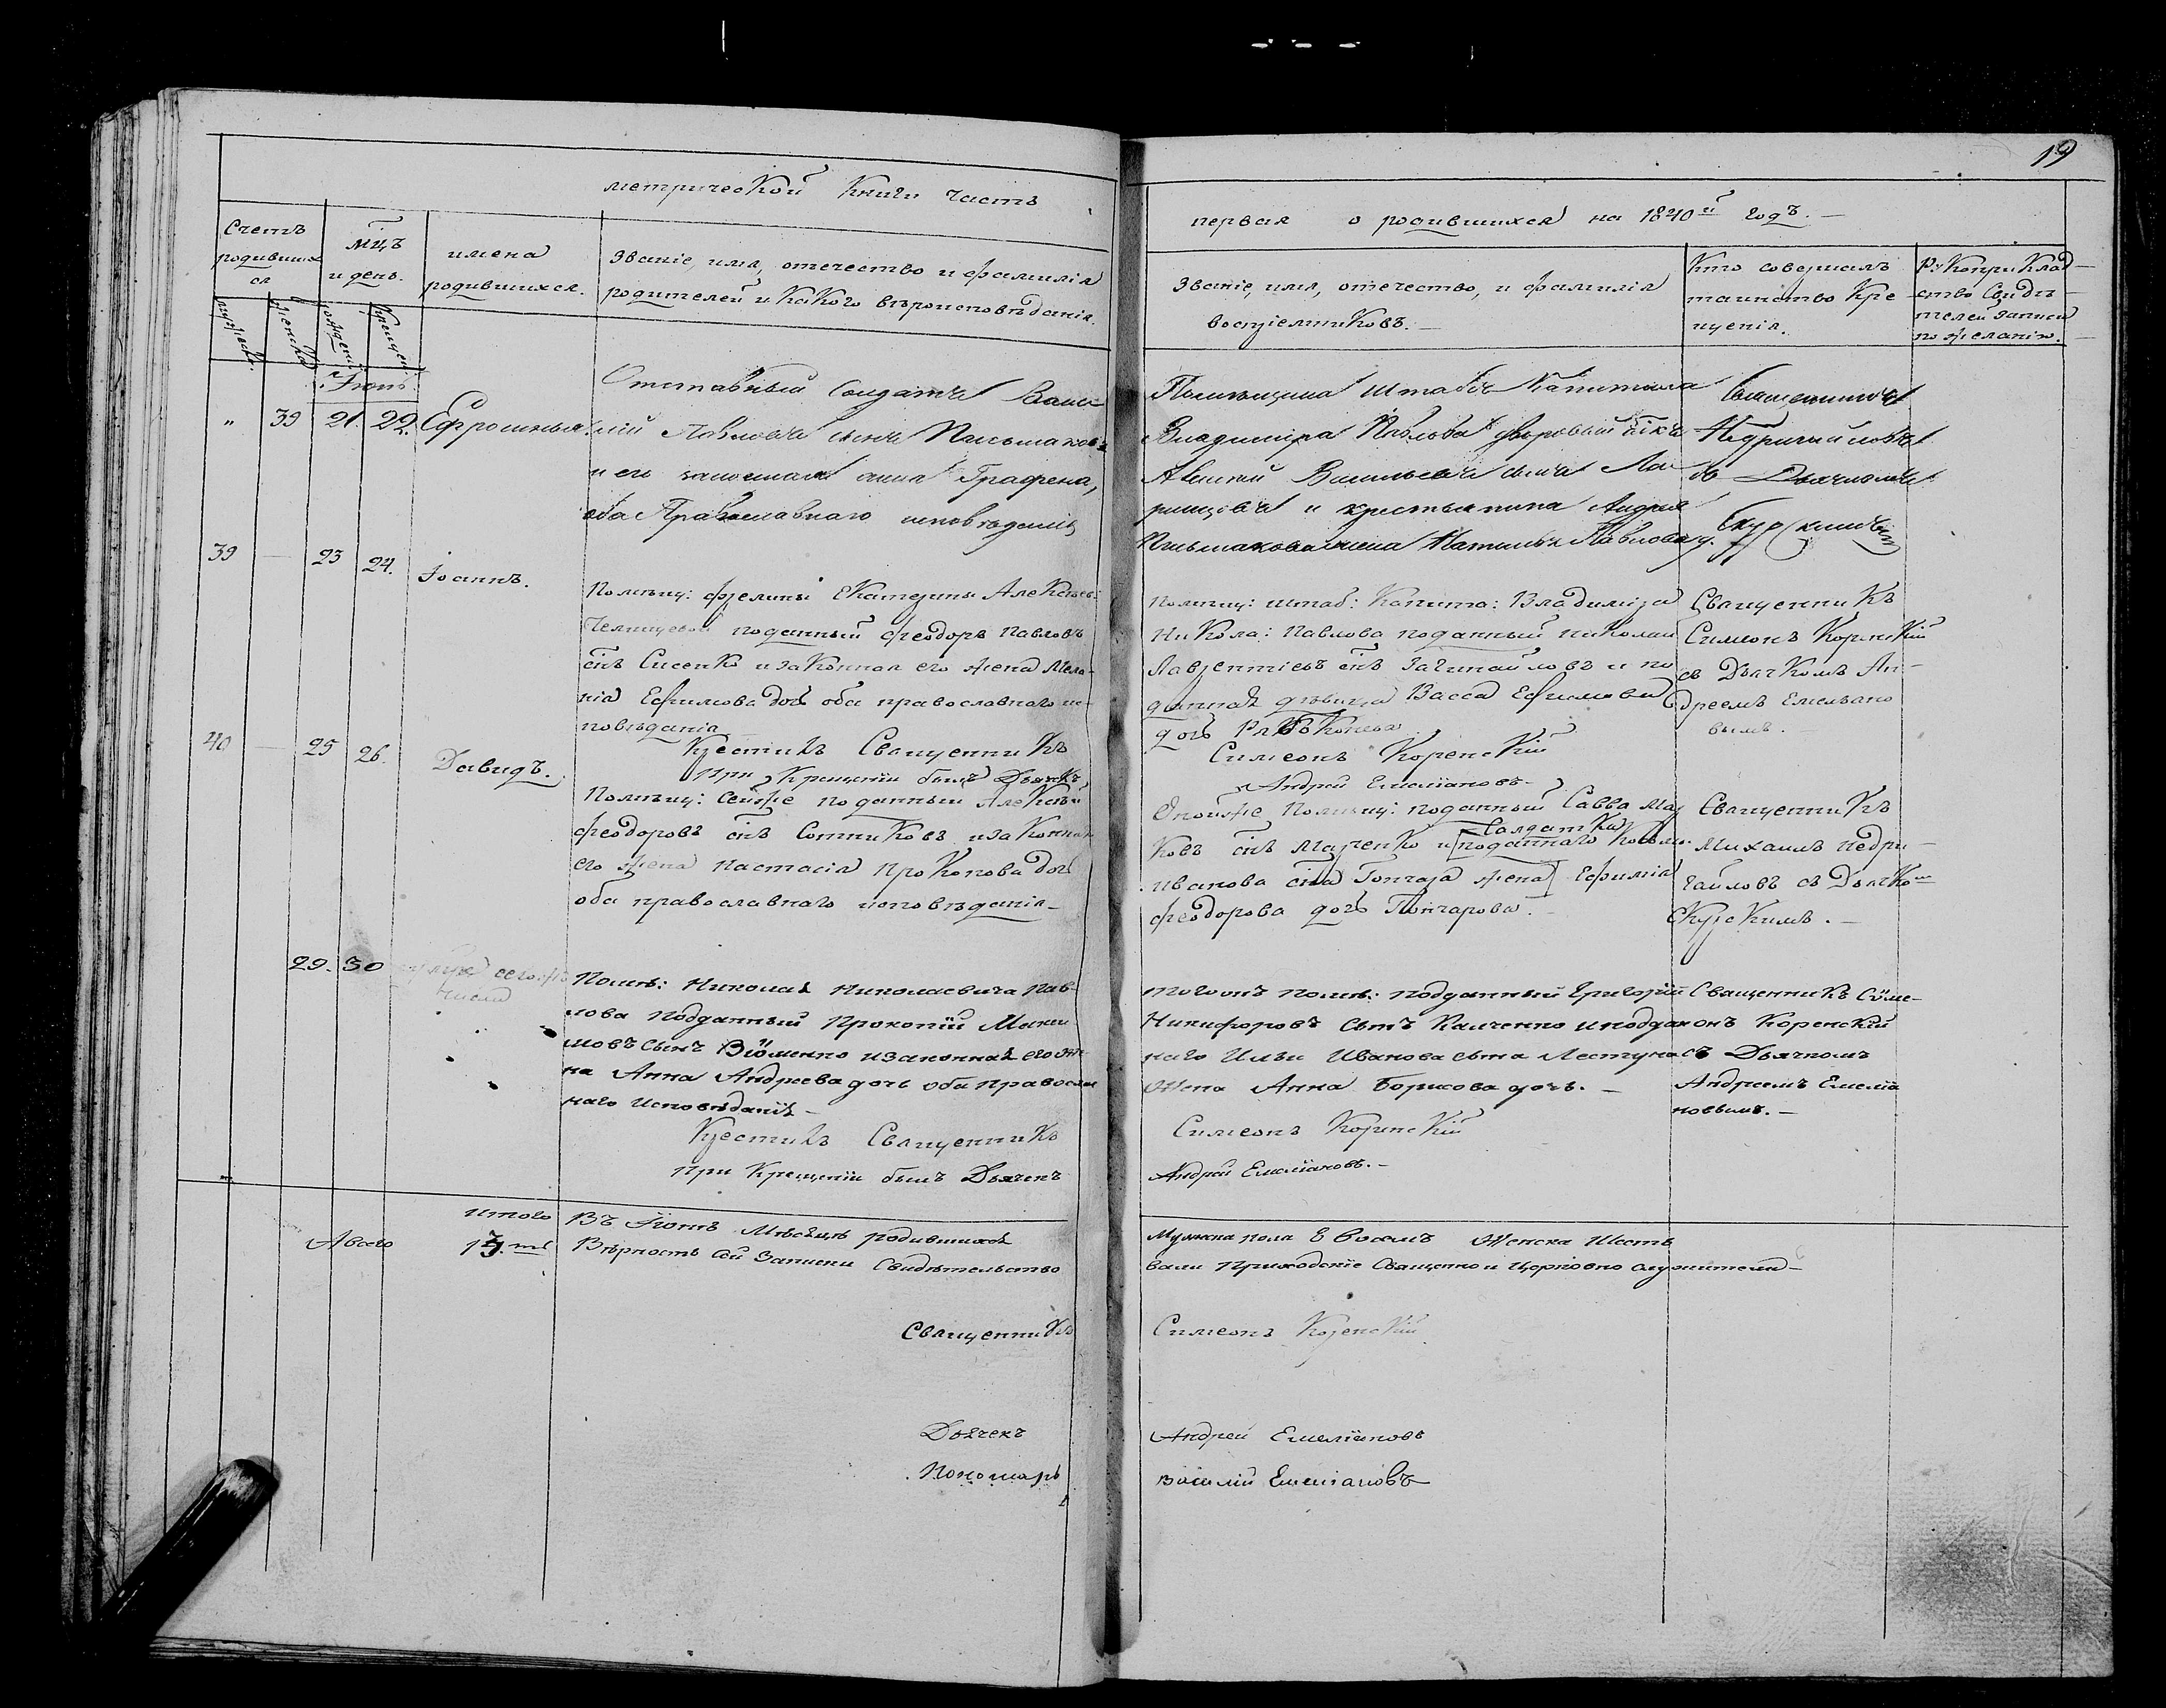 19
метрической Книги часть
первая о родившихся на 1840й годъ.
Счетъ
родивших
ся
мцъ
и день.
имена
родившихся.
Званіе, имя, отечество и фамилія
родителей и Какого вѣроисповѣданія.
Званіе, имя, отечество, и фамилія
воспріемниковъ.
Кто совершалъ
таинство Кре
щенія.
РуКоприКлад
ство Свидѣ
телей записи
по желанію.
мужска.
женска
рожденія
Крещен
Іюнь
" 39 21 22. Ефросинья.
Отставный Солдатъ Васи
лій Павловъ сынъ Письмаковъ
и его законная жена Графена,
оба Православнаго исповѣданія
Помѣщика Штабсъ Капитана
Владимира Павлова дворовый
Алексѣй Васильевъ сынъ
и крестьянина Андрея
Письмакова жена Наталья Павлова
Священникъ
Недригайловъ
съ Дьячкомъ
Скурскимъ
39 — 23 24. Іоаннъ.
Помѣщ: Екатерины Алексѣев:
Челищевой подданный Феодоръ Павловъ
снъ Сисенко и законная его жена Мела-
нія Ефимова дочь оба православнаго ис-
повѣданія
Крестилъ Священникъ
При Крещеніи былъ Дьячекъ
Помѣщ: штаб: Капита: Владиміра
Никола: Павлова подданный николай
Лаврентіевъ снъ и по
данная дѣвица Васса Ефимова
дочь
Симеонъ Коренскій
Андрей Емеліановъ
Священникъ
Симеонъ Коренскій
съ Дьячкомъ Ан-
дреемъ Емельяно
вымъ.
40 25 26. Давидъ.
Помѣщ: Сейже подданный Алексѣй
феодоровъ снъ Сотниковъ и законная
его жена Настасія Прокопова дочь
оба православнаго исповѣданія
Оной же Помѣщ: подданный Савва Ма
ковъ снъ Марченко и подданнаго
Салдатка
Иванова сна Гончара жена Ефимія
феодорова дочь Гончарова.
Священникъ
Михаилъ Недри-
гайловъ съ Дьячкомъ
Скурскимъ.
29. 30 сего же
числа
Помѣ: Николая Николаевича Пав-
лова подданный Прокопій Макси
мовъ сынъ и законная его же
на Анна Андреева дочь оба православ
наго исповѣданія
Крестилъ Священникъ
При Крещеніи былъ Дьячекъ
того онъ помѣ: подданный Григорій
Никифоровъ сынъ Калченко и поддан
наго Ильи Иванова сына Лестуна
Жена Анна Борисова дочь.
Симеонъ Коренскій
Андрей Емеліановъ.
Священникъ Симе-
онъ Коренскій
съ Дьячкомъ
Андреемъ Емеліа
новымъ.
итого Въ Іюнѣ Мѣсяцѣ родившихся
Мужска пола 8 Восемъ Женска Шесть
А всего Вѣрность сей Записи Свидѣтельство
вали Приходскіе Священно и Церковно служители
Священникъ Симеонъ Коренскій
Дьячекъ Андрей Емеліановъ
Пономарь Василій Емеліановъ